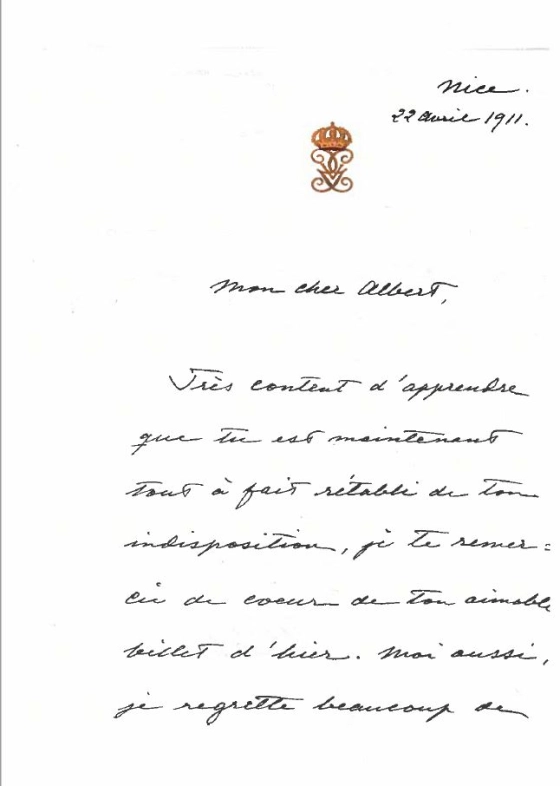 Nice.
22 avril 1911.
Mon cher Albert,
Très content d'apprendre
que tu est maintenant
tout à fait rétabli de ton
indisposition, je te remer=
cie de coeur de ton aimable
billet d'hier. Moi aussi,
je regrette beaucoup de